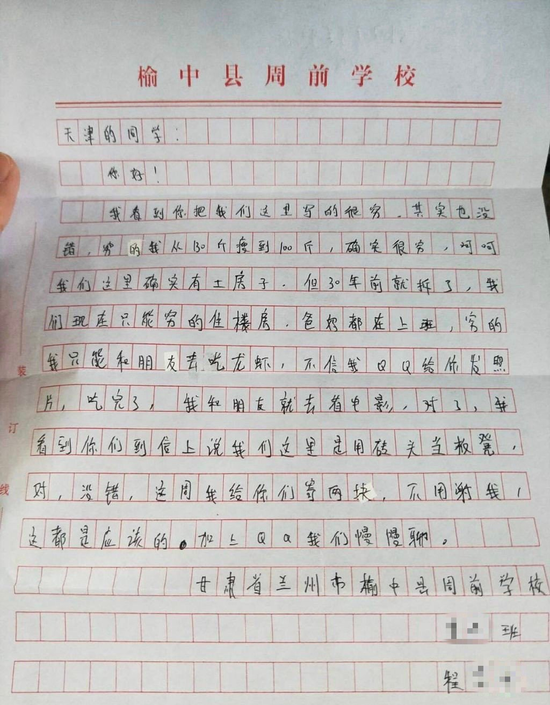 榆中县周前学校
天津的同学:
你好!
我看到你把我们这里写的很穷。其实也没
错,穷的我从130斤瘦到100斤,确实很穷,呵呵
我们这里确实有土房子。但30年前就拆了,我
们现在只能穷的住楼房。爸妈都在上班,穷的
我只能和朋友去吃龙虾,不信我QQ给你发照
片,吃完了,我和朋友就去看电影,对了,我
看到你们到信上说我们这里是用砖头当板凳,
对,没错,这周我给你们寄两块,不用谢我,
这都是应该的。加上QQ我们慢慢聊。
甘肃省兰州市榆中县周前学校
班
程
装
订
线